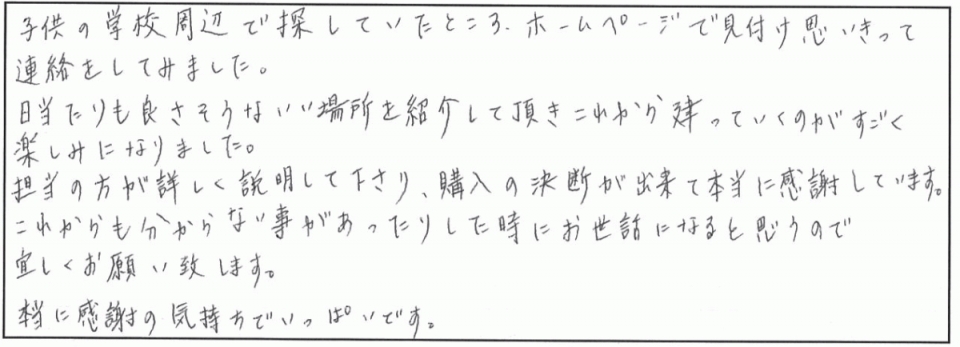 子供の学校周辺で探していたところ、ホームページで見付け思いきって
連絡をしてみました。
日当たりも良さそうないい場所を紹介して頂きこれから建っていくのがすごく
楽しみになりました。
担当の方が詳しく説明して下さり、購入の決断が出来て本当に感謝しています。
これからも分からない事があったりした時にお世話になると思うので
宜しくお願い致します。
本当に感謝の気持ちでいっぱいです。